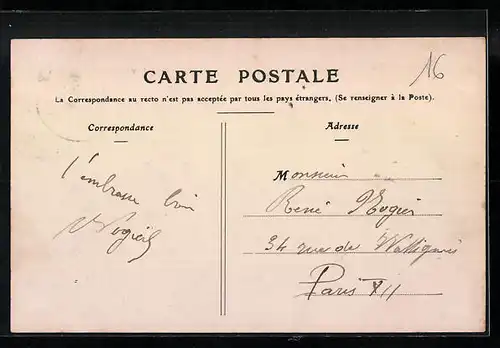 16
CARTE POSTALE
La Correspondance au recto n'est pas acceptée par tous les pays étrangers. (Se renseigner à la Poste).
Correspondance
Adresse
t'embrasse bien
Monsieur
René Nogier
34 rue de Wattignies
Paris XII